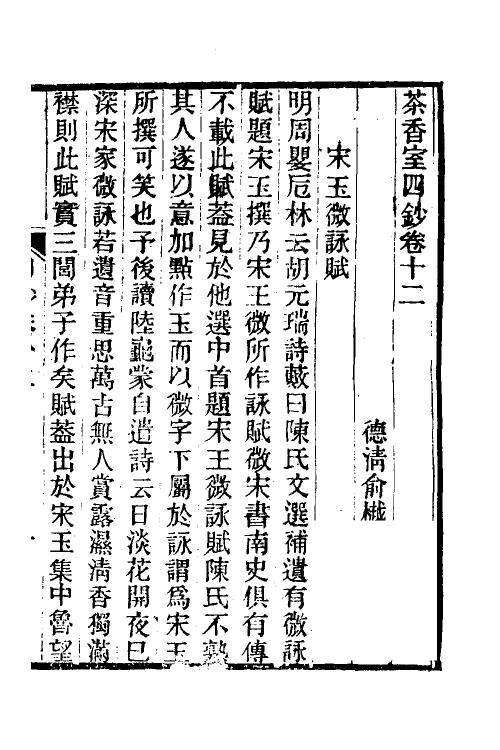 茶香室四鈔卷十二
德淸俞樾
宋玉微詠賦
明周嬰卮林云胡元瑞詩藪曰陳氏文選補遺有微詠
賦題宋玉撰乃宋王微所作詠賦微宋書南史俱有傳
不載此賦蓋見於他選中首題宋王微詠賦陳氏不熟
其人遂以意加點作玉而以微字下屬於詠謂爲宋玉
所撰可笑也予後讀陸龜蒙自遣詩云日淡花開夜巳
深宋家微詠若遺音重思萬古無人賞露濕淸香獨滿
襟則此賦實三閭弟子作矣賦蓋出於宋玉集中魯望